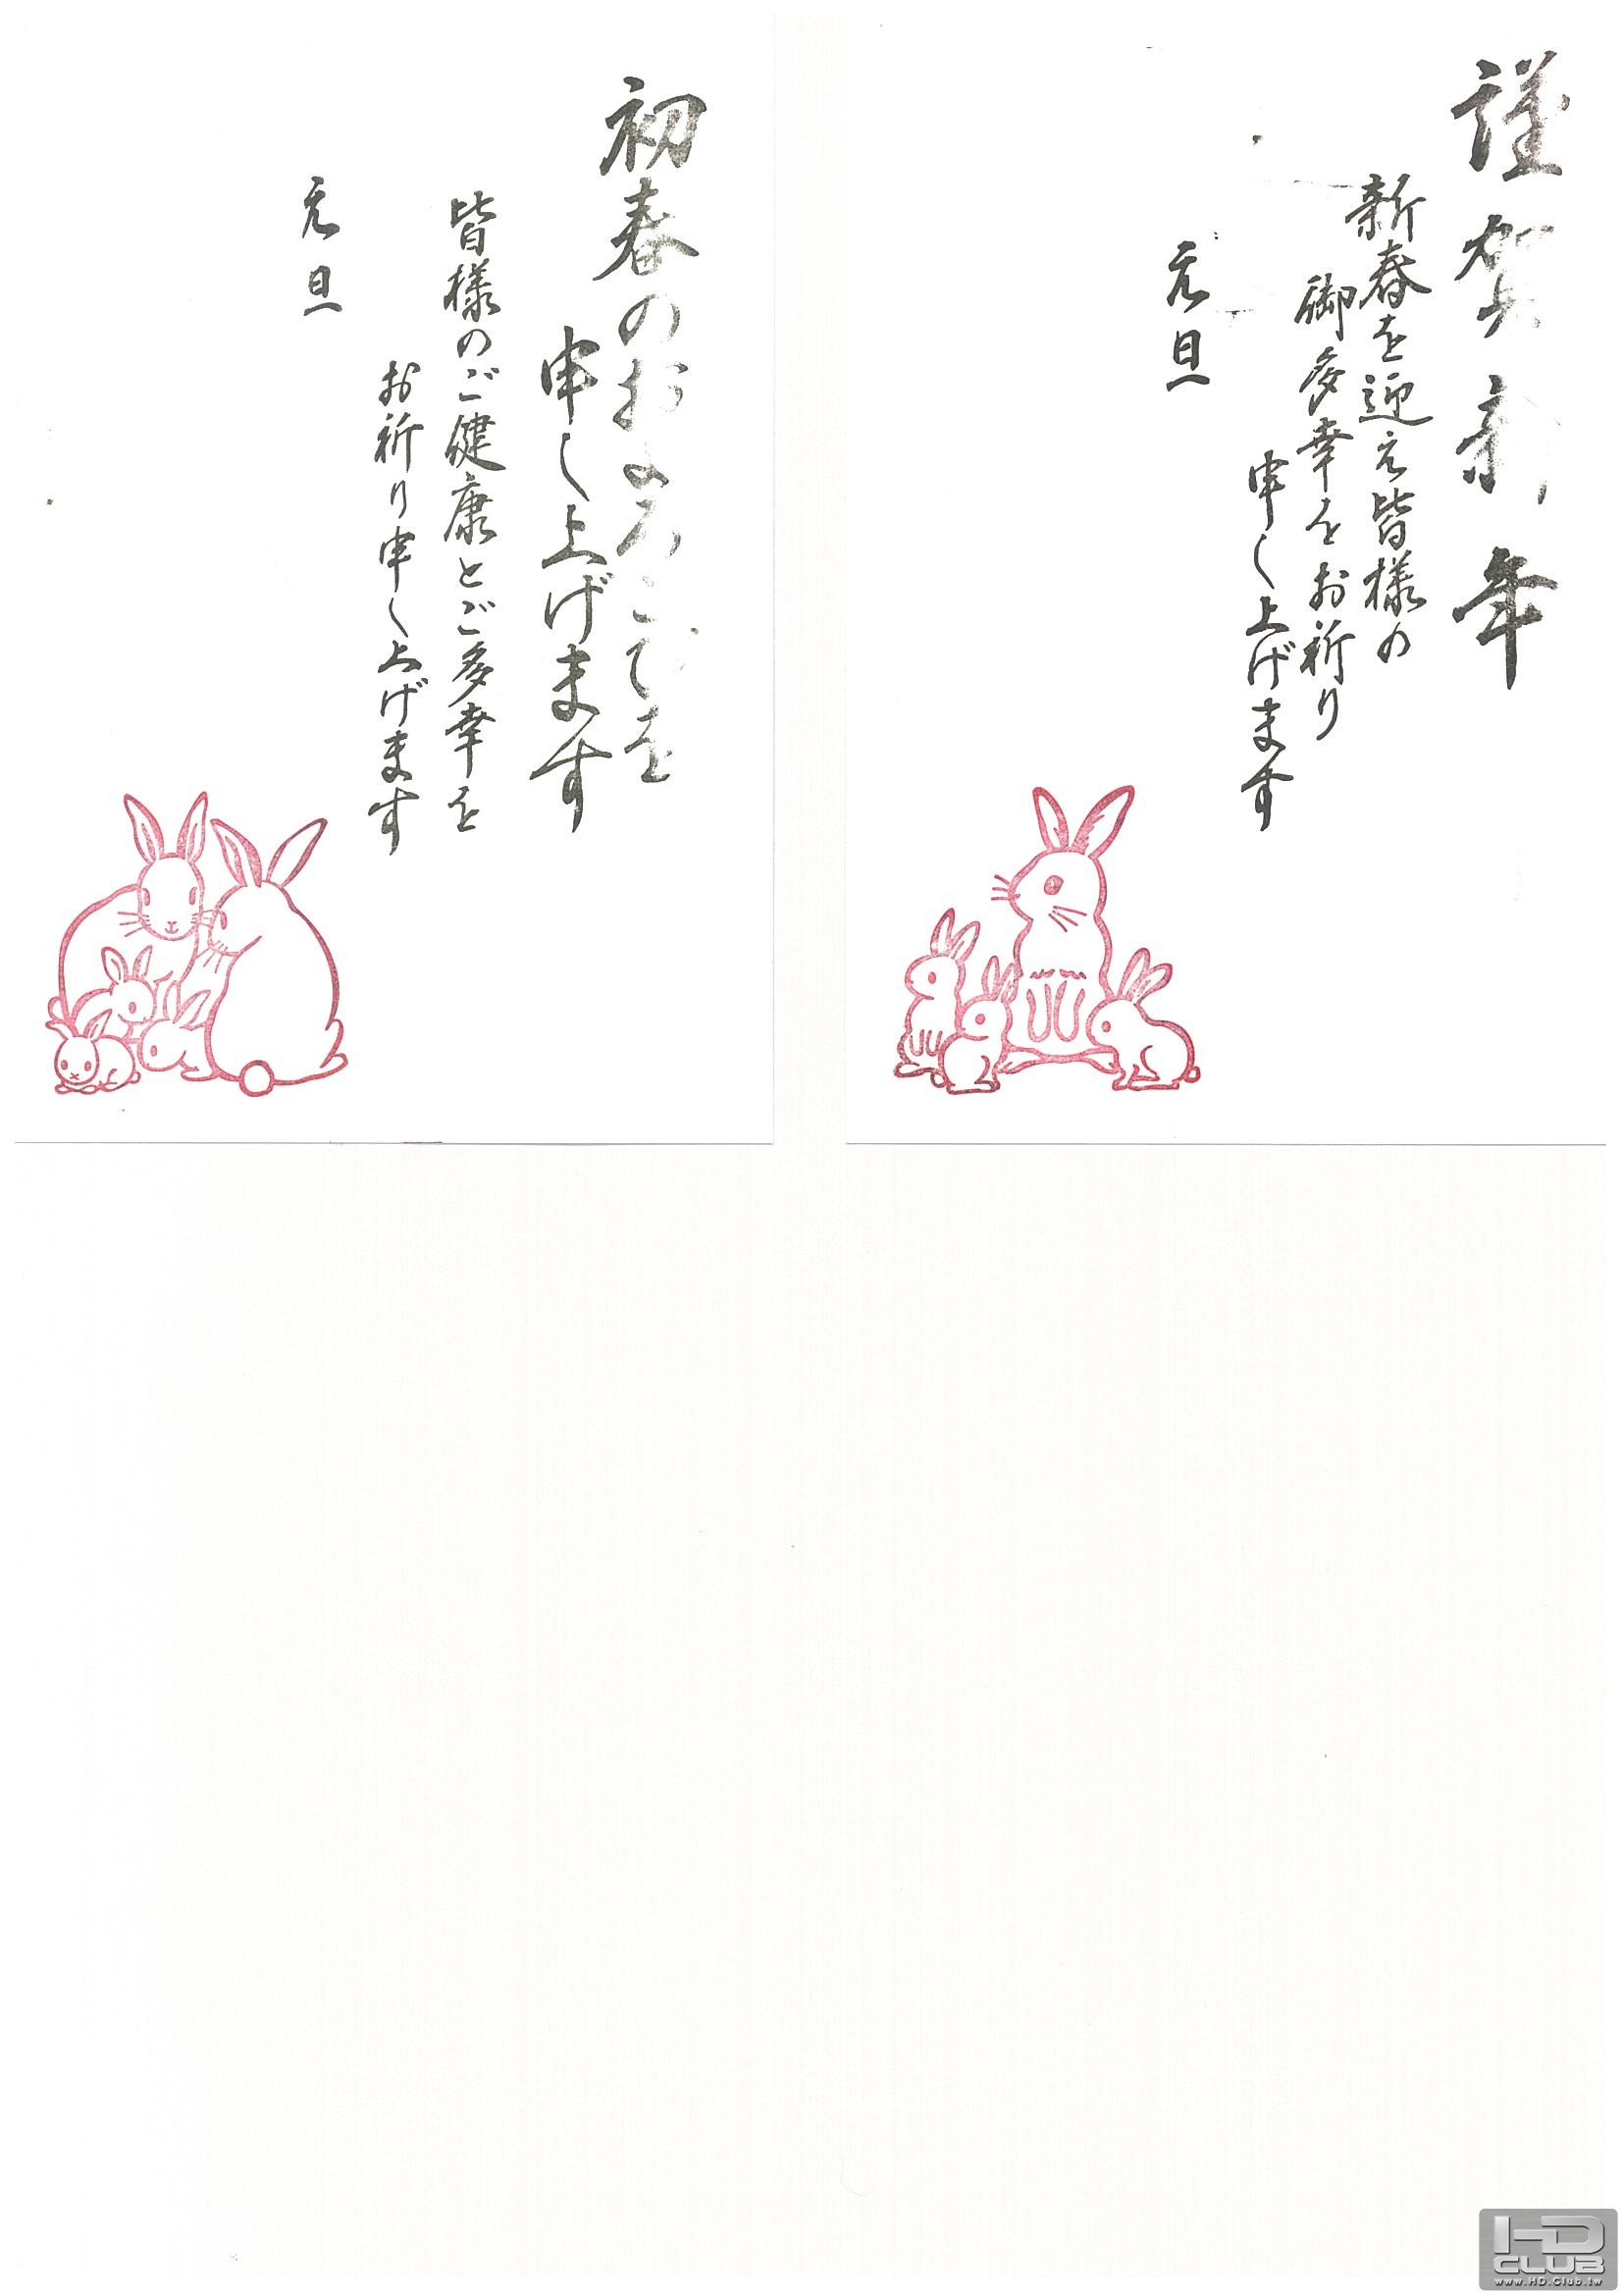 謹賀新年
新春を迎え皆様の
御多幸をお祈り
申し上げます
元旦
初春のおよろこびを
申し上げます
皆様のご健康とご多幸を
お祈り申し上げます
元旦
HD
CLUB
www.HD.Club.tw